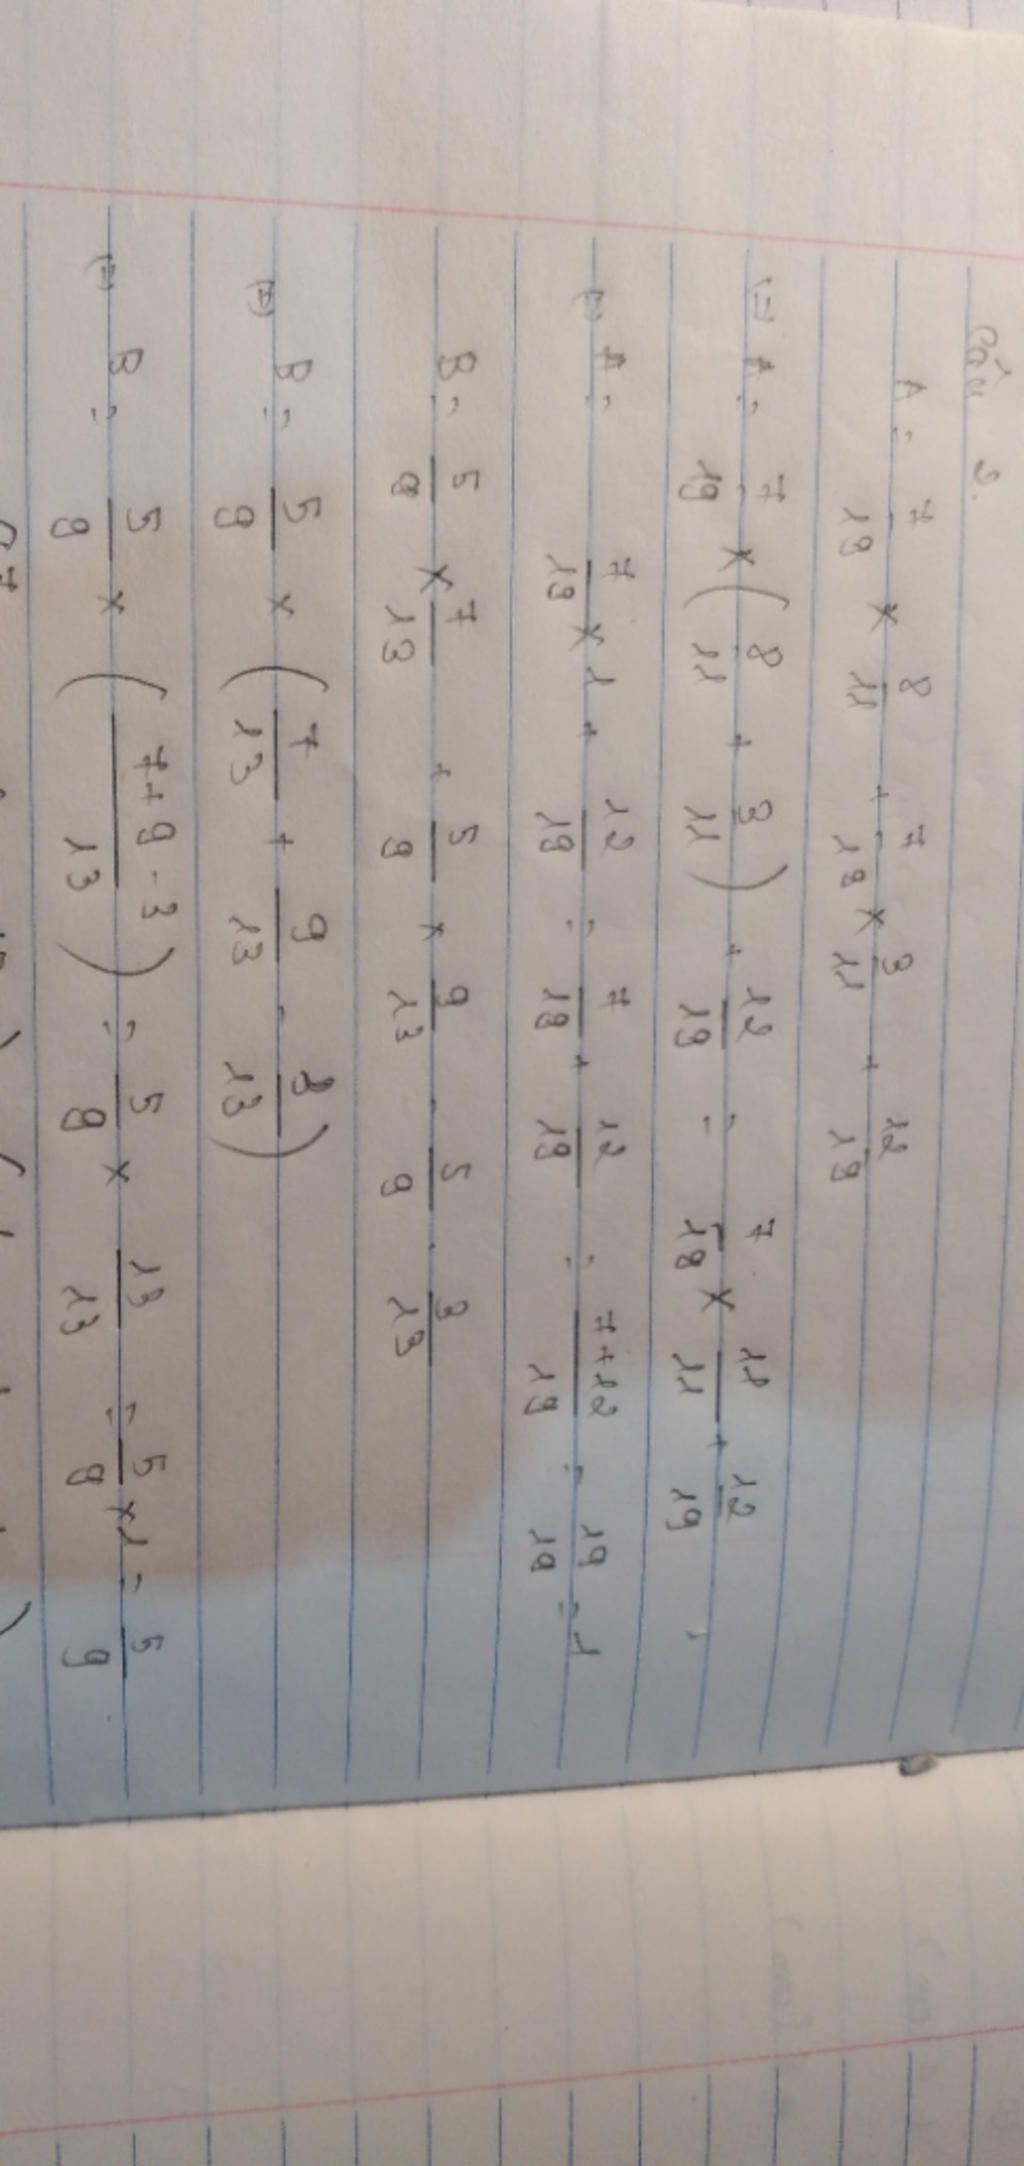 Câu 2.
A = 7/19 × 8/11 + 7/19 × 3/11 + 12/19
(=) A = 7/19 × (8/11 + 3/11) + 12/19 = 7/19 × 11/11 + 12/19
(=) A = 7/19 × 1 + 12/19 = 7/19 + 12/19 = 7+12/19 = 19/19 = 1
B = 5/9 × 7/13 + 5/9 × 9/13 - 5/9 . 3/13
(=) B = 5/9 × (7/13 + 9/13 - 3/13)
(=) B = 5/9 × (7+9-3/13) = 5/9 × 13/13 = 5/9 × 1 = 5/9